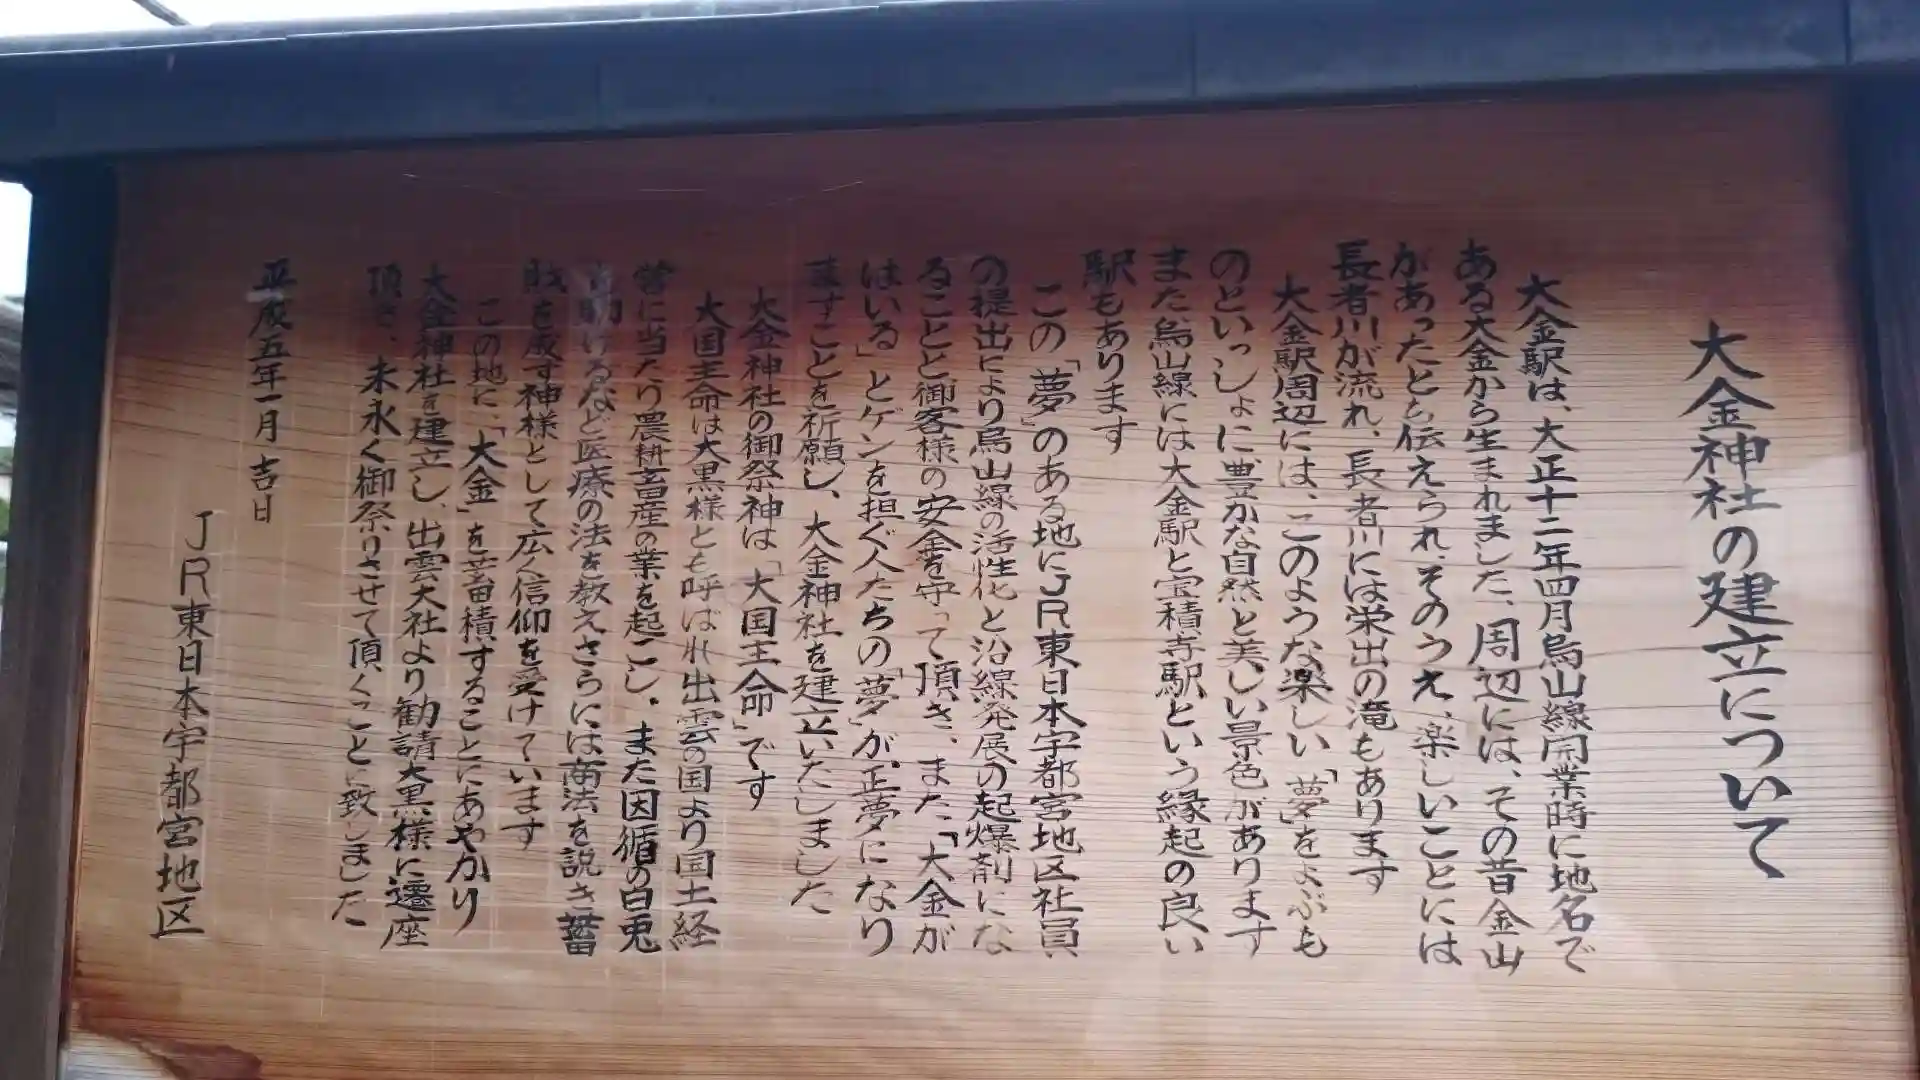 大金神社の建立について
大金駅は、大正十二年四月烏山線開業時に地名で
ある大金から生まれました、周辺には、その昔金山
があったとも伝えられ、そのうえ、楽しいことには
長者川が流れ、長者川には栄出の滝もあります
大金駅周辺には、このような楽しい「夢」をよぶも
のといっしょに豊かな自然と美しい景色があります
また烏山線には大金駅と宝積寺駅という縁起の良い
駅もあります
この「夢」のある地にJR東日本宇都宮地区社員
の提出により烏山線の活性化と沿線発展の起爆剤にな
ることと御客様の安全を守って頂き、また、「大金が
はいる」とゲンを担ぐ人たちの「夢」が正夢になり
ますことを祈願し、大金神社を建立いたしました
大金神社の御祭神は「大国主命」です
大国主命は大黒様とも呼ばれ出雲の国より国土経
営に当たり農耕畜産の業を起こし、また因循の白兎
助けるなど医療の法を教えさらには商法を説き蓄
財を成す神様として広く信仰を受けています
この地に、「大金」を蓄積することにあやかり
大金神社を建立し、出雲大社より勧請大黒様に遷座
頂き、末永く御祭りさせて頂くことに致しました
平成五年一月吉日
JR東日本宇都宮地区